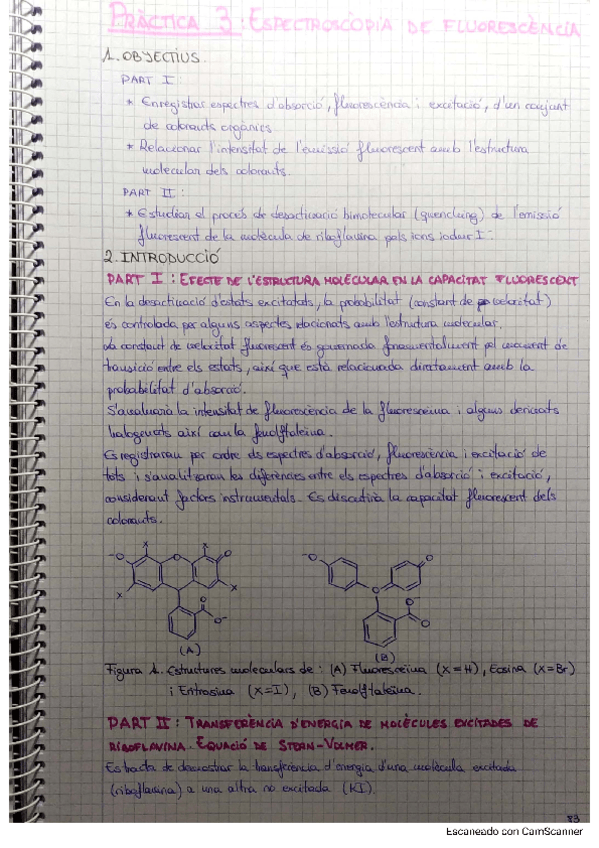 PRÀCTICA 3: ESPECTROSCÒPIA DE FLUORESCÈNCIA
1. OBJECTIUS.
PART I
* Enregistrar espectres d'absorció, fluorescència i excitació, d'un conjunt
de colorants orgànics
* Relacionar l'intensitat de l'emissió fluorescent amb l'estructura
molecular dels colorants.
PART II:
* Estudiar el procés de desactivació bimolecular (quenching) de l'emissió
fluorescent de la molècula de riboflavina pels ions iodur I⁻.
2. INTRODUCCIÓ
PART I: EFECTE DE L'ESTRUCTURA MOLECULAR EN LA CAPACITAT FLUORESCENT
En la desactivació d'estats excitatats, la probabilitat (constant de velocitat)
és controlada per alguns aspectes relacionats amb l'estructura molecular.
La constant de velocitat fluorescent és governada fonamentalment pel moment de
transició entre els estats, així que està relacionada directament amb la
probabilitat d'absorció.
S'avaluarà la intensitat de fluorescència de la fluoresceïna i alguns derivats
halogenats així com la fenolftaleïna.
Es registraran per ordre els espectres d'absorció, fluorescència i excitació de
tots i s'analitzaran les diferències entre els espectres d'absorció i excitació,
considerant factors instrumentals. Es discutirà la capacitat fluorescent dels
colorants.
⁻O X O X O
X X
O
O⁻
(A)
⁻O O
C
O
O
(B)
Figura 1. Estructures moleculars de: (A) Fluoresceïna (X=H), Eosina (X=Br)
i Eritrosina (X=I), (B) Fenolftaleïna.
PART II: TRANSFERÈNCIA D'ENERGIA DE MOLÈCULES EXCITADES DE
RIBOFLAVINA. EQUACIÓ DE STERN-VOLMER.
Es tracta de demostrar la transferència d'energia d'una molècula excitada
(riboflavina) a una altra no excitada (KI).
83
Escaneado con CamScanner